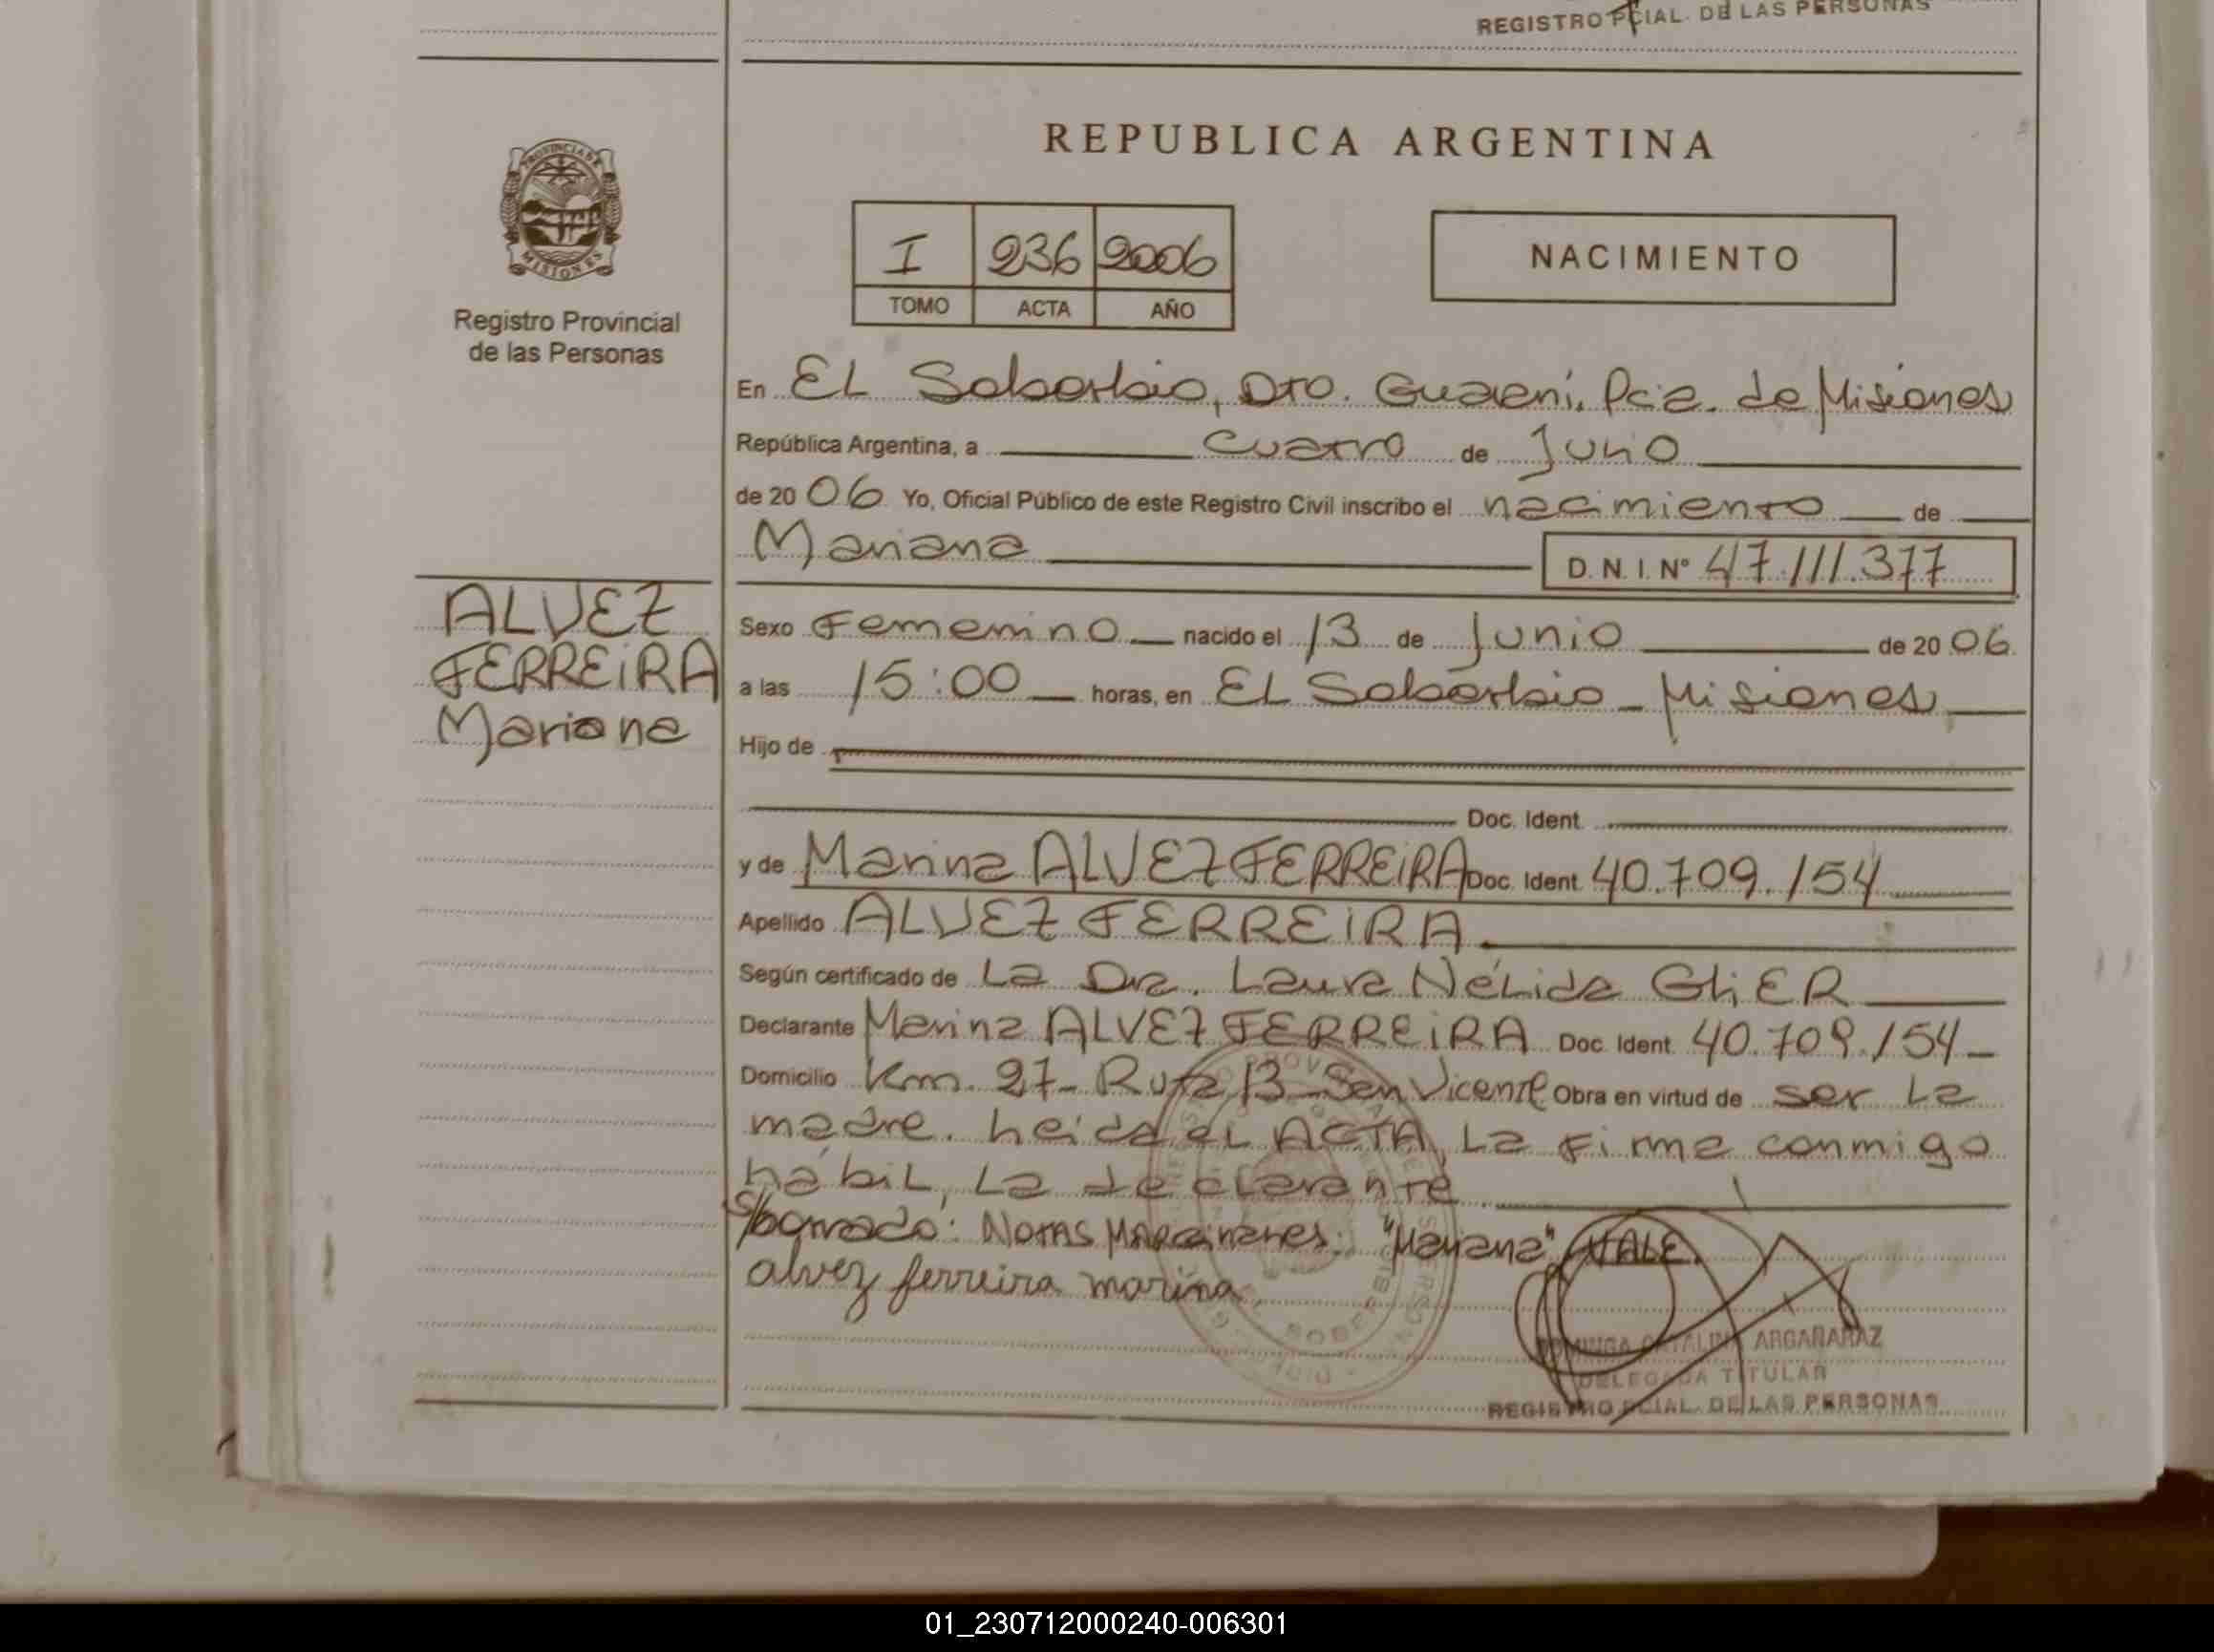 REGISTRO PCIAL. DE LAS PERSONAS
REPUBLICA ARGENTINA
PROVINCIA DE
MISIONES
Registro Provincial
de las Personas
I 236 2006
TOMO ACTA AÑO
NACIMIENTO
En EL Soberbio, Dto. Guarani, Pcia. de Misiones
República Argentina, a cuatro de Julio
de 2006 Yo, Oficial Público de este Registro Civil inscribo el nacimiento de
Mariana D. N. I. N° 47.111.377
ALVEZ
FERREiRA
Mariana
Sexo Femenino nacido el 13 de Junio de 2006
a las 15:00 horas, en EL Soberbio - Misiones
Hijo de
Doc. Ident.
y de Marina ALVEZ FERREiRA Doc. Ident. 40.709.154
Apellido ALVEZ FERREiRA
Según certificado de La Dra. Laura Nélida GliER
Declarante Marina ALVEZ FERREiRA Doc. Ident. 40.709.154
Domicilio Km. 27- Ruta 13 - San Vicente Obra en virtud de ser La
madre. Leida eL ACTA, La firma conmigo
hábiL, La declarante
S/borrado: Notas Marginales: "Mariana", VALE.
alvez ferreira marina
DOMINGA CATALINA ARGAÑARAZ
DELEGADA TITULAR
REGISTRO PCIAL. DE LAS PERSONAS
01_230712000240-006301